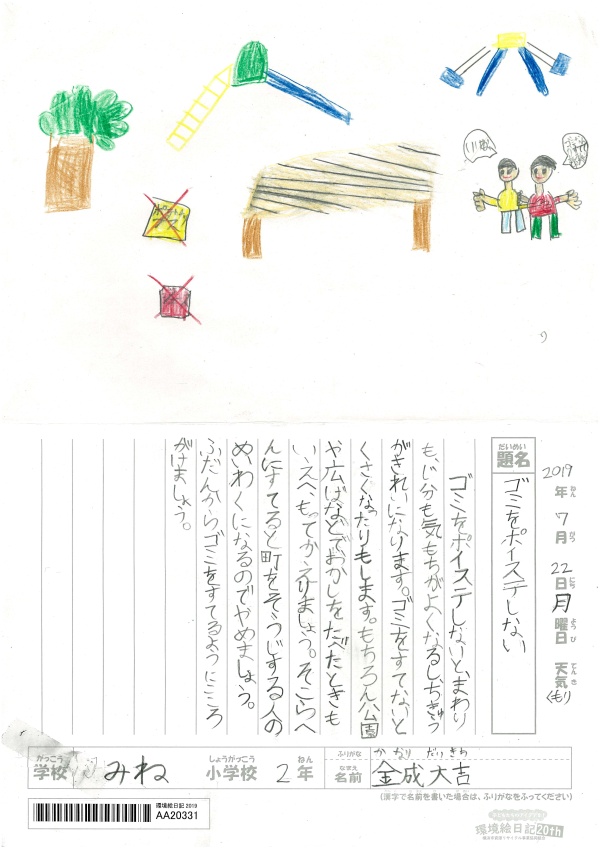 ポテト
チップス
だいめい
題名
ゴミをポイステしない
2019年7月22日月曜日 天気くもり
ねん
がつ
にち
ようび
てんき
ゴミをポイステしないと、まわり
も、じ分も気もちがよくなるし、ちきゅう
がきれいになります。ゴミをすてないと
くさくなったりもします。もちろん公園
や広ばなどでおかしをたべたときも
いえへもってかえりましょう。そこらへ
んにすてると町をそうじする人の
めいわくになるのでやめましょう。
ふだんからゴミをすてるようにこころ
がけましょう。
がっこう
学校
みね
しょうがっこう
小学校
2
ねん
年
ふりがな
かなり だいきち
なまえ
名前
金成大吉
(漢字で名前を書いた場合は、ふりがなをふってください)
環境絵日記 2019
AA20331
環境絵日記20th